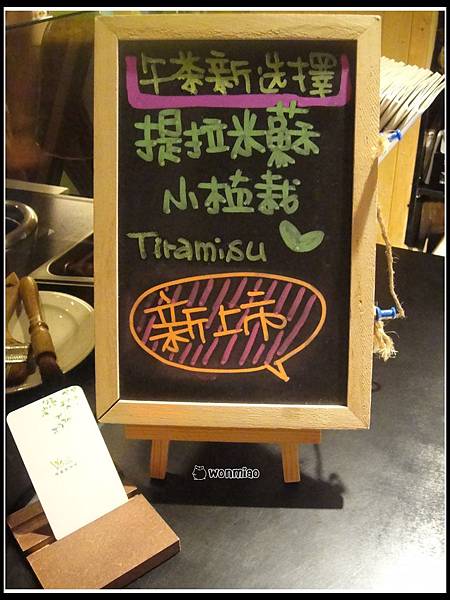 午茶新选擇
提拉米蘇
小植栽
Tiramisu
新上市
wonmiao